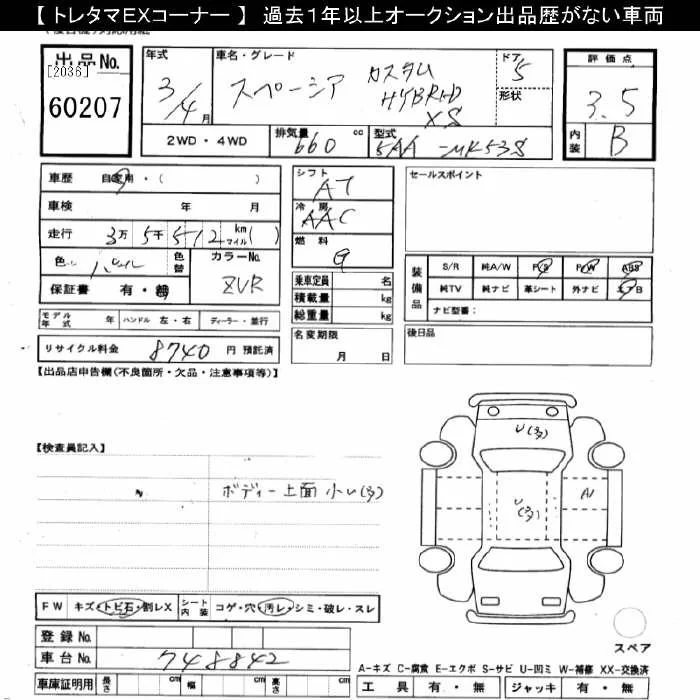 【トレタマEXコーナー】 過去1年以上オークション出品歴がない車両
出品No.
[2036]
60207
年式
3/4月
車名・グレード
スペーシア カスタム
HYBRID
XS
ドア
5
形状
評価点
3.5
内装
B
2WD・4WD
排気量
660 cc
型式
5AA-MK53S
車歴 自家用・( )
車検 年 月
走行 3万5千512 km マイル ( )
色 パール 色替
カラーNo.
ZVR
保証書 有・無
シフト
AT
冷房
AAC
燃料
G
乗車定員 名
積載量 kg
総重量 kg
セールスポイント
装備品
S/R 純A/W P/S P/W ABS
純TV 純ナビ 革シート 外ナビ エアB
ナビ型番:
モデル年式 年 ハンドル 左・右 ディーラー・並行
リサイクル料金 8740 円 預託済
名変期限
月 日
後日品
【出品店申告欄(不良箇所・欠品・注意事項等)】
【検査員記入】
ボディー上面 小U(多)
U(多)
U(多)
A1
FW キズ・トビ石・割レX
シート内装 コゲ・穴・汚レ・シミ・破レ・スレ
スペア
登録No.
車台No. 748842
A-キズ C-腐食 E-エクボ S-サビ U-凹ミ W-補修 XX-交換済
車庫証明用 長さ cm 幅 cm 高さ cm
工具 有・無 ジャッキ 有・無